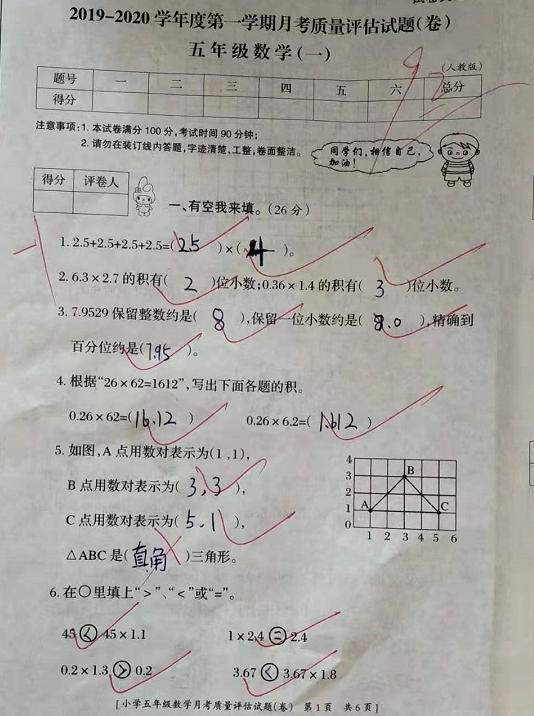 2019-2020学年度第一学期月考质量评估试题(卷)
五年级数学(一)
(人教版)
题号 一 二 三 四 五 六 总分
得分
92
注意事项:1.本试卷满分100分,考试时间90分钟;
2.请勿在装订线内答题,字迹清楚、工整,卷面整洁。
同学们,相信自己,
加油!
得分 评卷人
一、有空我来填。(26分)
-1
1. 2.5+2.5+2.5+2.5=( 2.5 )×( 4 )。
2. 6.3×2.7的积有( 2 )位小数;0.36×1.4的积有( 3 )位小数。
3. 7.9529保留整数约是( 8 ),保留一位小数约是( 8.0 ),精确到
百分位约是( 7.95 )。
4. 根据“26×62=1612”,写出下面各题的积。
0.26×62=( 16.12 ) 0.26×6.2=( 1.612 )
5. 如图,A点用数对表示为(1,1),
B点用数对表示为( 3,3 ),
C点用数对表示为( 5.1 ),
△ABC是( 直角 )三角形。
4
3
2
1
0
A B C
1 2 3 4 5 6
6. 在○里填上“>”、“<”或“=”。
45 < 45×1.1 1×2.4 = 2.4
0.2×1.3 > 0.2 3.67 < 3.67×1.8
[小学五年级数学月考质量评估试题(卷) 第1页 共6页]